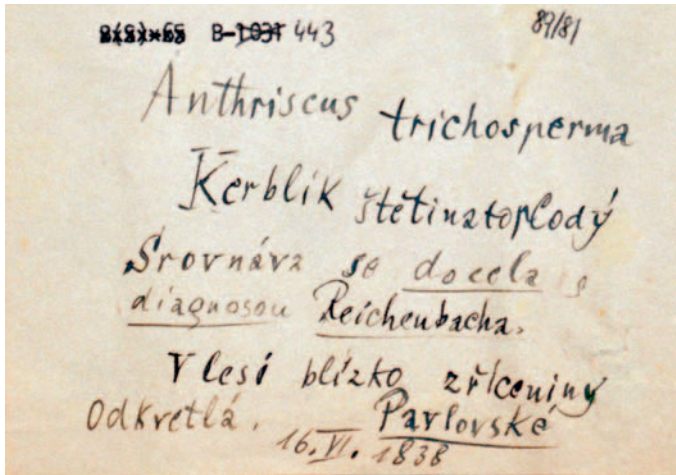 B-1031 443 89/81
Anthriscus trichosperma
Kerblík štětinatoplodý
Srovnává se docela s
diagnosou Reichenbacha.
V lesi blízko zříceniny
Odkvetlá. Pavlovské
16. VI. 1838